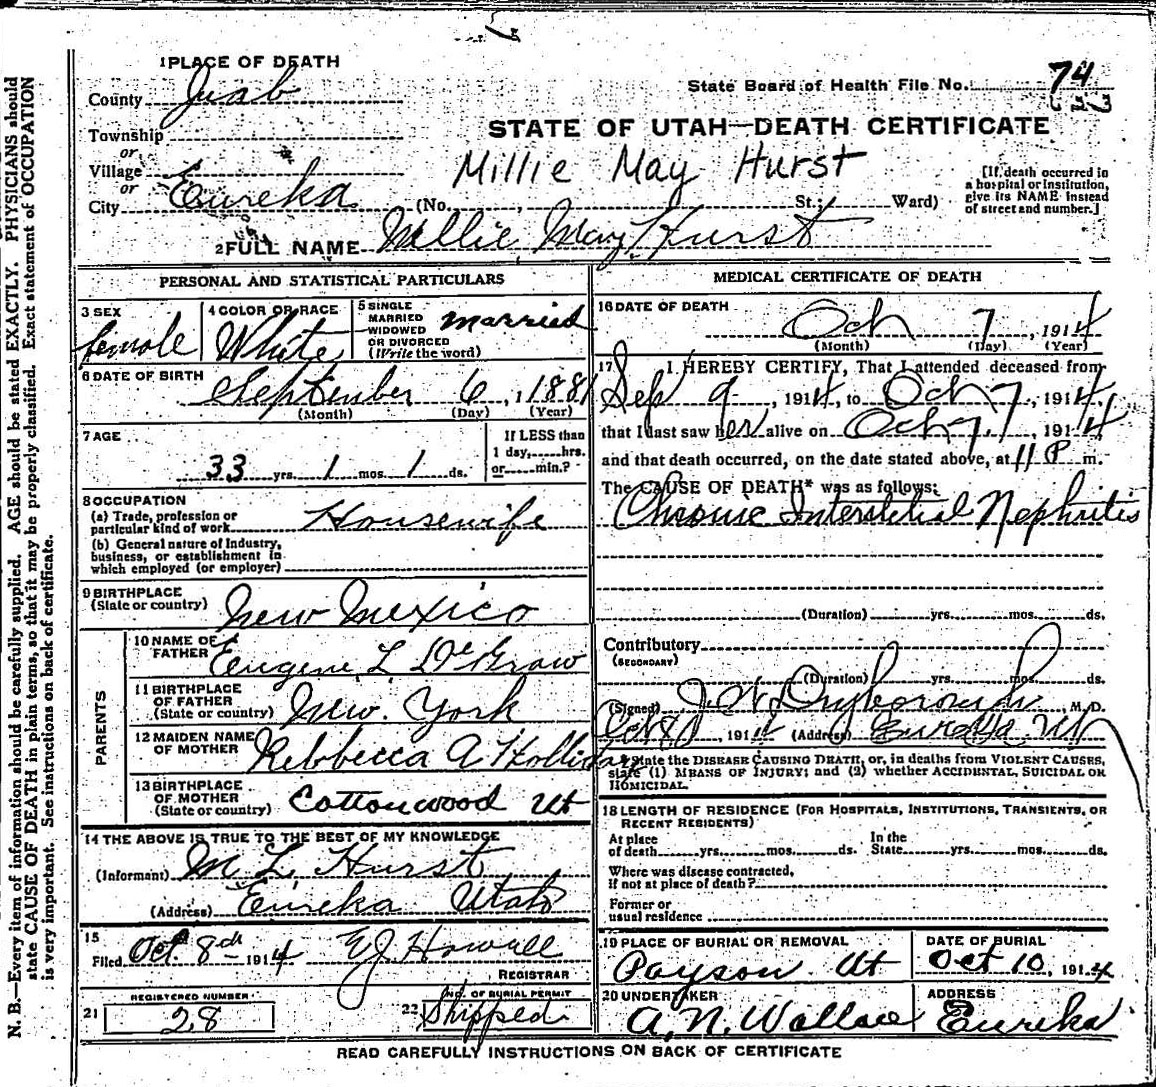 1 PLACE OF DEATH
County Juab
State Board of Health File No. 74
Township
or
Village
or
City Eureka (No. , St.; Ward)
STATE OF UTAH—DEATH CERTIFICATE
Millie May Hurst
[If death occurred in
a hospital or institution,
give its NAME instead
of street and number.]
2 FULL NAME Millie May Hurst
PERSONAL AND STATISTICAL PARTICULARS
3 SEX
female
4 COLOR OR RACE
White
5 SINGLE
MARRIED
WIDOWED
OR DIVORCED
(Write the word)
married
6 DATE OF BIRTH
September 6, 1881
(Month) (Day) (Year)
7 AGE
33 yrs. 1 mos. 1 ds.
If LESS than
1 day, hrs.
or min.?
8 OCCUPATION
(a) Trade, profession or
particular kind of work Housewife
(b) General nature of Industry,
business, or establishment in
which employed (or employer)
9 BIRTHPLACE
(State or country) New Mexico
PARENTS
10 NAME OF
FATHER Eugene L DeGraw
11 BIRTHPLACE
OF FATHER
(State or country) New York
12 MAIDEN NAME
OF MOTHER Rebbecca A Holliday
13 BIRTHPLACE
OF MOTHER
(State or country) Cottonwood Ut
14 THE ABOVE IS TRUE TO THE BEST OF MY KNOWLEDGE
(Informant) M L Hurst
(Address) Eureka Utah
15
Filed Oct. 8th 1914 EJ Howell
REGISTRAR
REGISTERED NUMBER
21 28
NO. OF BURIAL PERMIT
22 Shipped
MEDICAL CERTIFICATE OF DEATH
16 DATE OF DEATH
Oct 7, 1914
(Month) (Day) (Year)
17 I HEREBY CERTIFY, That I attended deceased from
Sep 9, 1914, to Oct 7, 1914,
that I last saw her alive on Oct 7, 1914
and that death occurred, on the date stated above, at 11 P m.
The CAUSE OF DEATH* was as follows:
Chronic Interstitial Nephritis
(Duration) yrs. mos. ds.
Contributory
(SECONDARY)
(Duration) yrs. mos. ds.
(Signed) J. W. Dryborough, M.D.
Oct 8, 1914 (Address) Eureka Ut
* State the DISEASE CAUSING DEATH, or, in deaths from VIOLENT CAUSES,
state (1) MEANS OF INJURY; and (2) whether ACCIDENTAL, SUICIDAL OR
HOMICIDAL.
18 LENGTH OF RESIDENCE (FOR HOSPITALS, INSTITUTIONS, TRANSIENTS, OR
RECENT RESIDENTS)
At place
of death yrs. mos. ds.
In the
State yrs. mos. ds.
Where was disease contracted,
If not at place of death?
Former or
usual residence
19 PLACE OF BURIAL OR REMOVAL
Payson Ut
DATE OF BURIAL
Oct 10, 1914
20 UNDERTAKER
A. N. Wallace
ADDRESS
Eureka
READ CAREFULLY INSTRUCTIONS ON BACK OF CERTIFICATE
N. B.—Every item of information should be carefully supplied. AGE should be stated EXACTLY. PHYSICIANS should
state CAUSE OF DEATH in plain terms, so that it may be properly classified. Exact statement of OCCUPATION
is very important. See instructions on back of certificate.